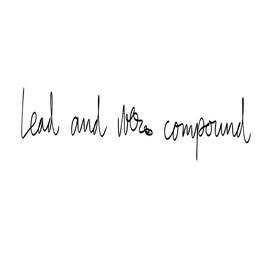 Lead and compound